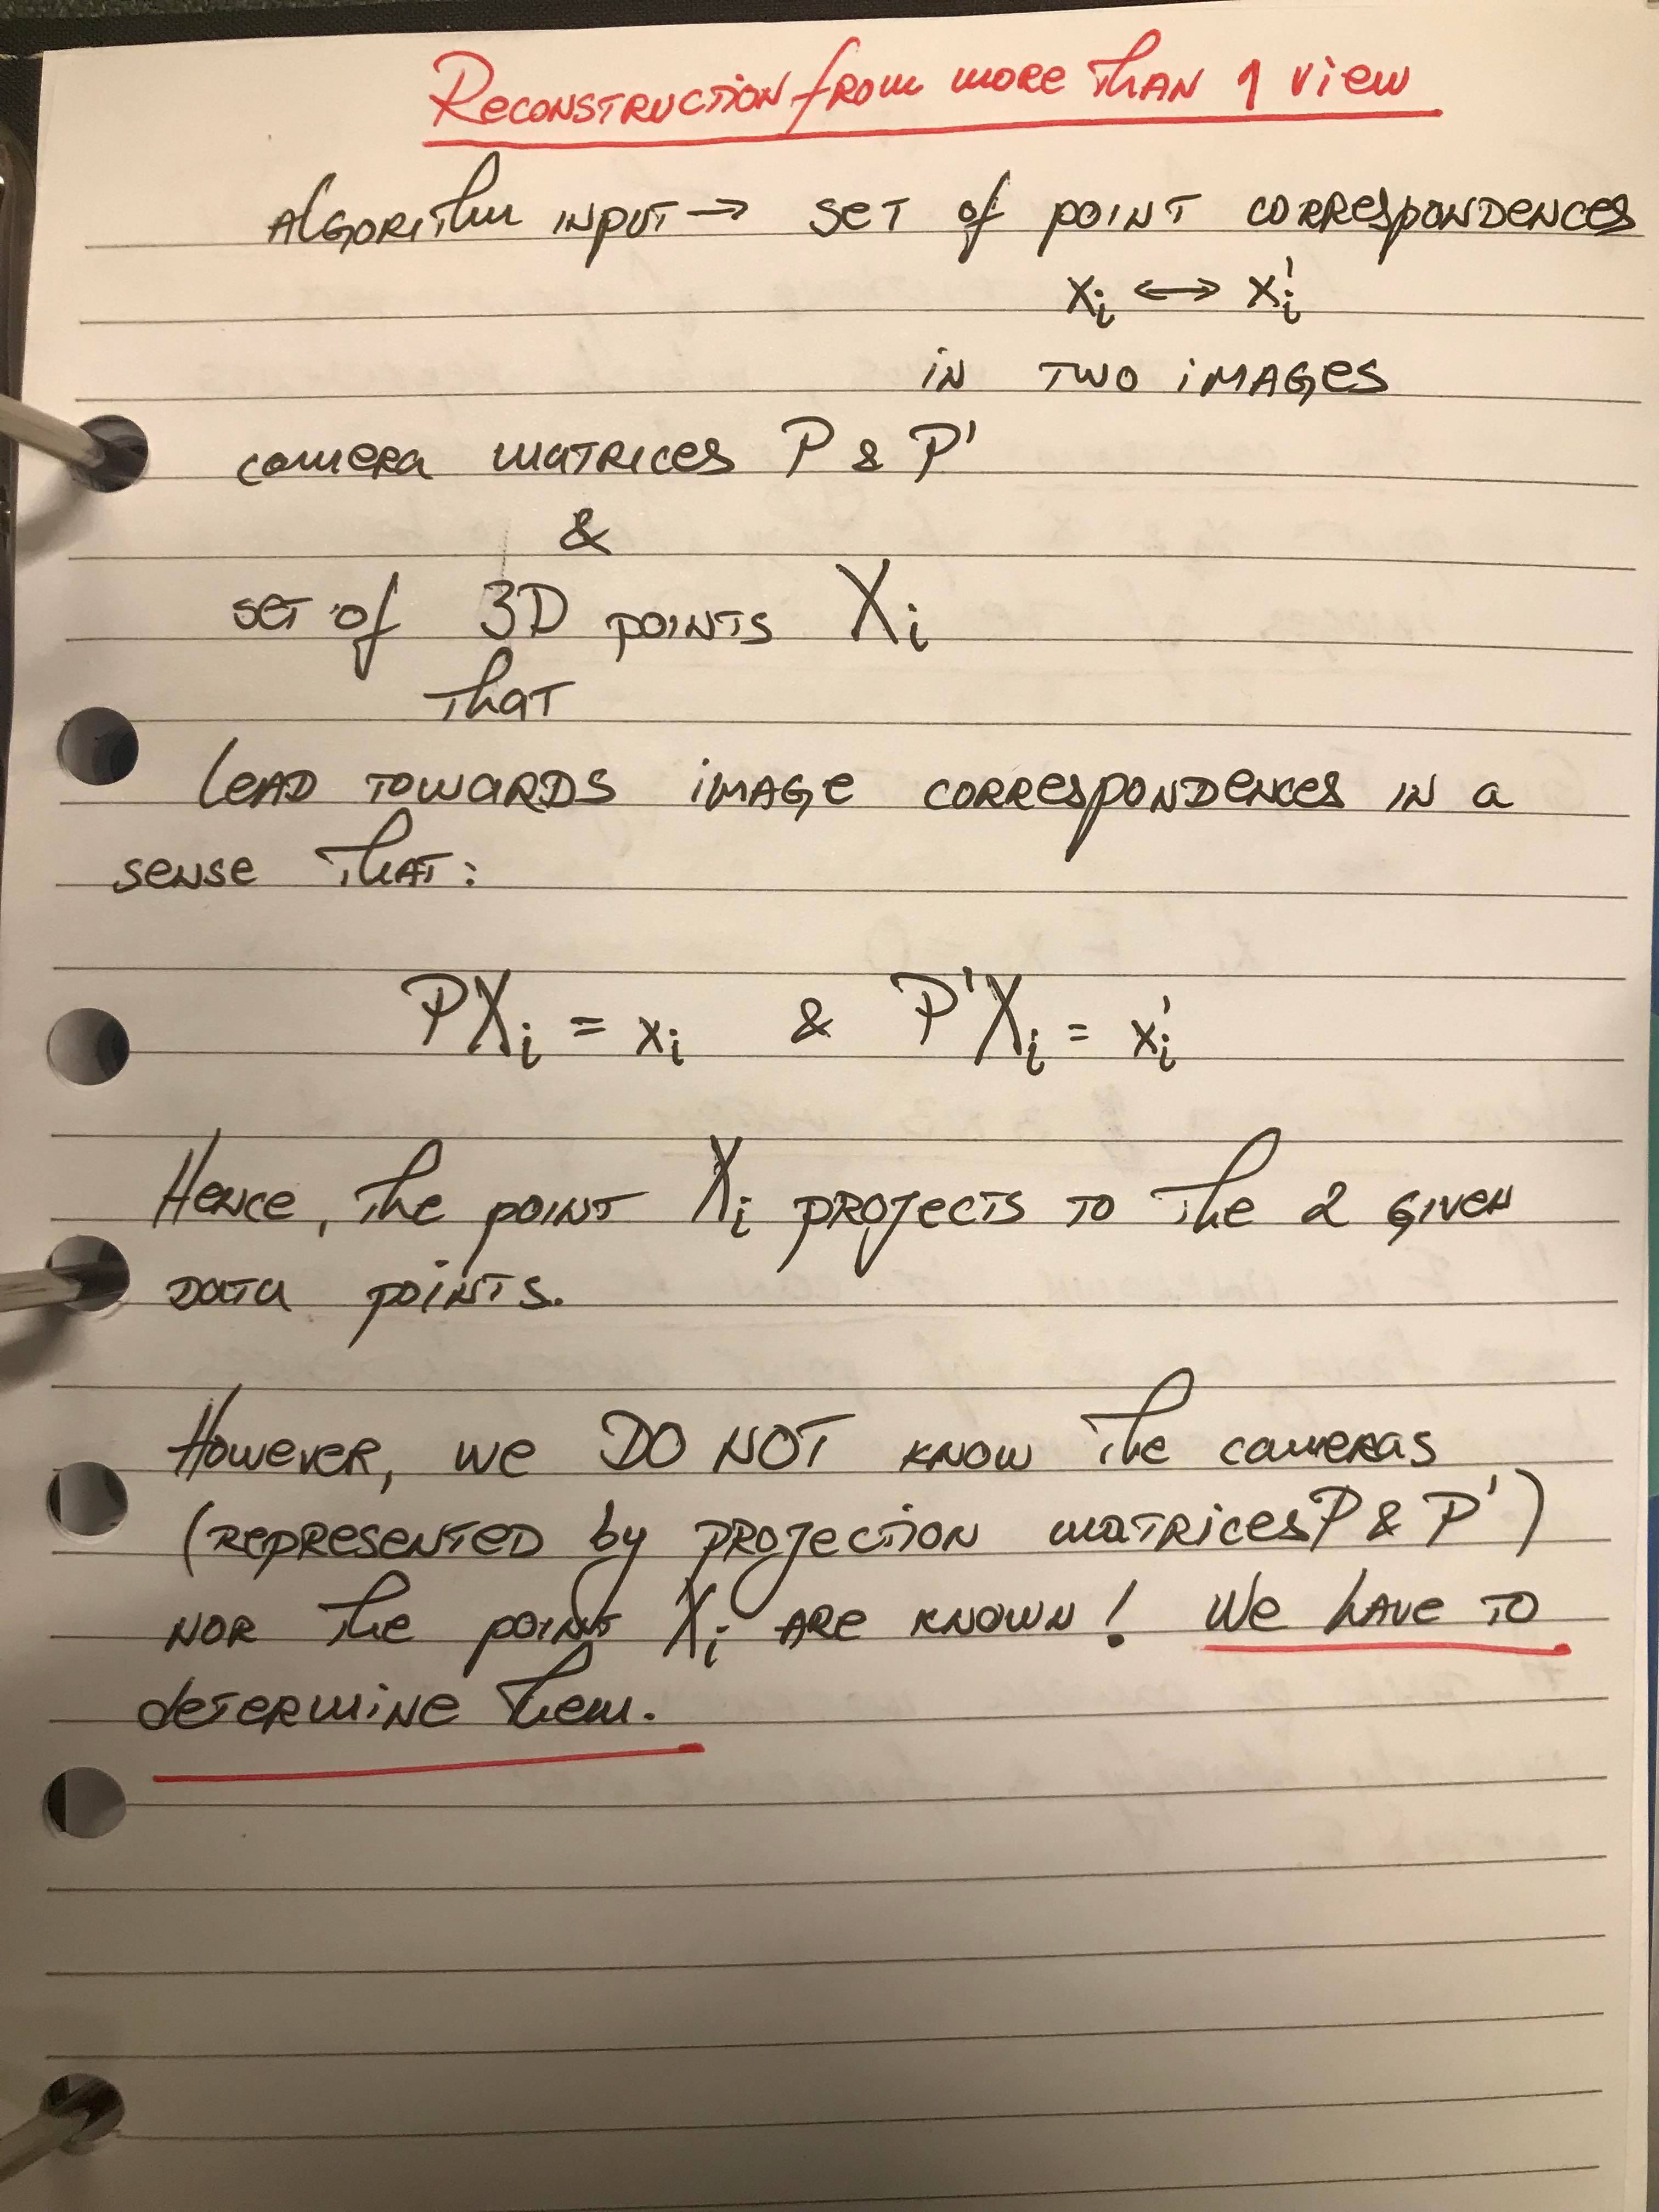 Reconstruction from more than 1 view
Algorithm input → set of point correspondences
xᵢ ↔ xᵢ'
in two images
camera matrices P & P'
&
set of 3D points Xᵢ
that
lead towards image correspondences in a
sense that:
PXᵢ = xᵢ & P'Xᵢ = xᵢ'
Hence, the point Xᵢ projects to the 2 given
data points.
However, we DO NOT know the cameras
(represented by projection matrices P & P')
nor the points Xᵢ are known! We have to
determine them.